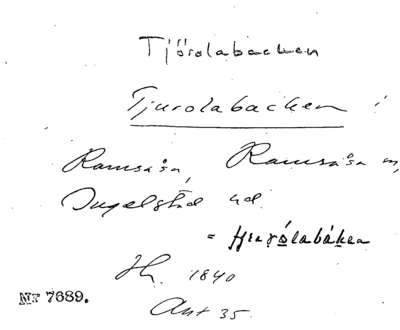 Tjörolabacken
Tjurolabacken i
Ramsåsa, Ramsåsa sn,
Ingelstad hd.
=
Hg. 1840
Nr 7689.
Ant 35.